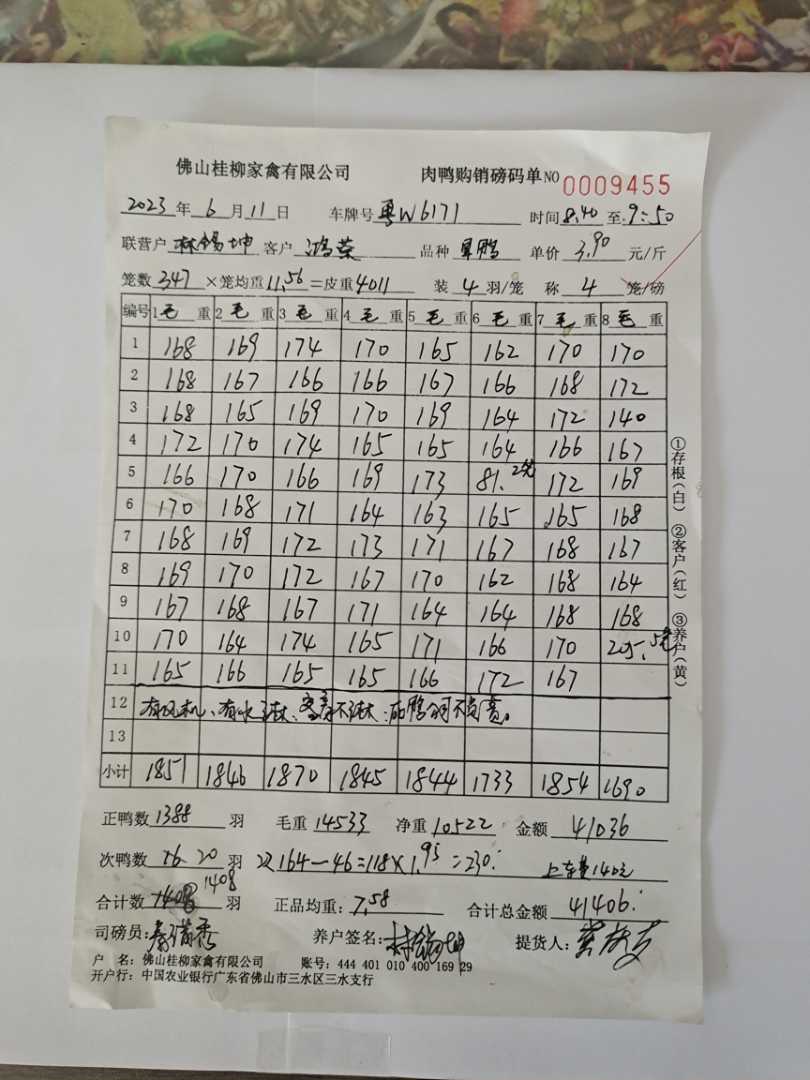 佛山桂柳家禽有限公司 肉鸭购销磅码单 NO 0009455
2023 年 6 月 11 日 车牌号 粤W6171 时间 8:40 至 9:50
联营户 林锡坤 客户 鸿荣 品种 单价 3.90 元/斤
笼数 347 ×笼均重 11.56 =皮重 4011 装 4 羽/笼 称 4 笼/磅
编号 1 毛 重 2 毛 重 3 毛 重 4 毛 重 5 毛 重 6 毛 重 7 毛 重 8 毛 重
1 168 169 174 170 165 162 170 170
2 168 167 166 166 167 166 168 172
3 168 165 169 170 169 164 172 140
4 172 170 174 165 165 164 166 167
5 166 170 166 169 173 81. 172 169
6 170 168 171 164 163 165 165 168
7 168 169 172 173 171 167 168 167
8 169 170 172 167 170 162 168 164
9 167 168 167 171 164 164 168 168
10 170 164 174 165 171 166 170 205.
11 165 166 165 165 166 172 167
12 有风机、有水
13
小计 1851 1846 1870 1845 1844 1733 1854 1690
正鸭数 1388 羽 毛重 14533 净重 10522 金额 41036
次鸭数 20 羽 164-46=118×1.95=230. 上车费140元
合计数 1408 羽 正品均重: 7.58 合计总金额 41406.
司磅员: 养户签名: 林锡坤 提货人:
户 名: 佛山桂柳家禽有限公司 账号: 444 401 010 400 169 29
开户行: 中国农业银行广东省佛山市三水区三水支行
①存根(白) ②客户(红) ③养户(黄)